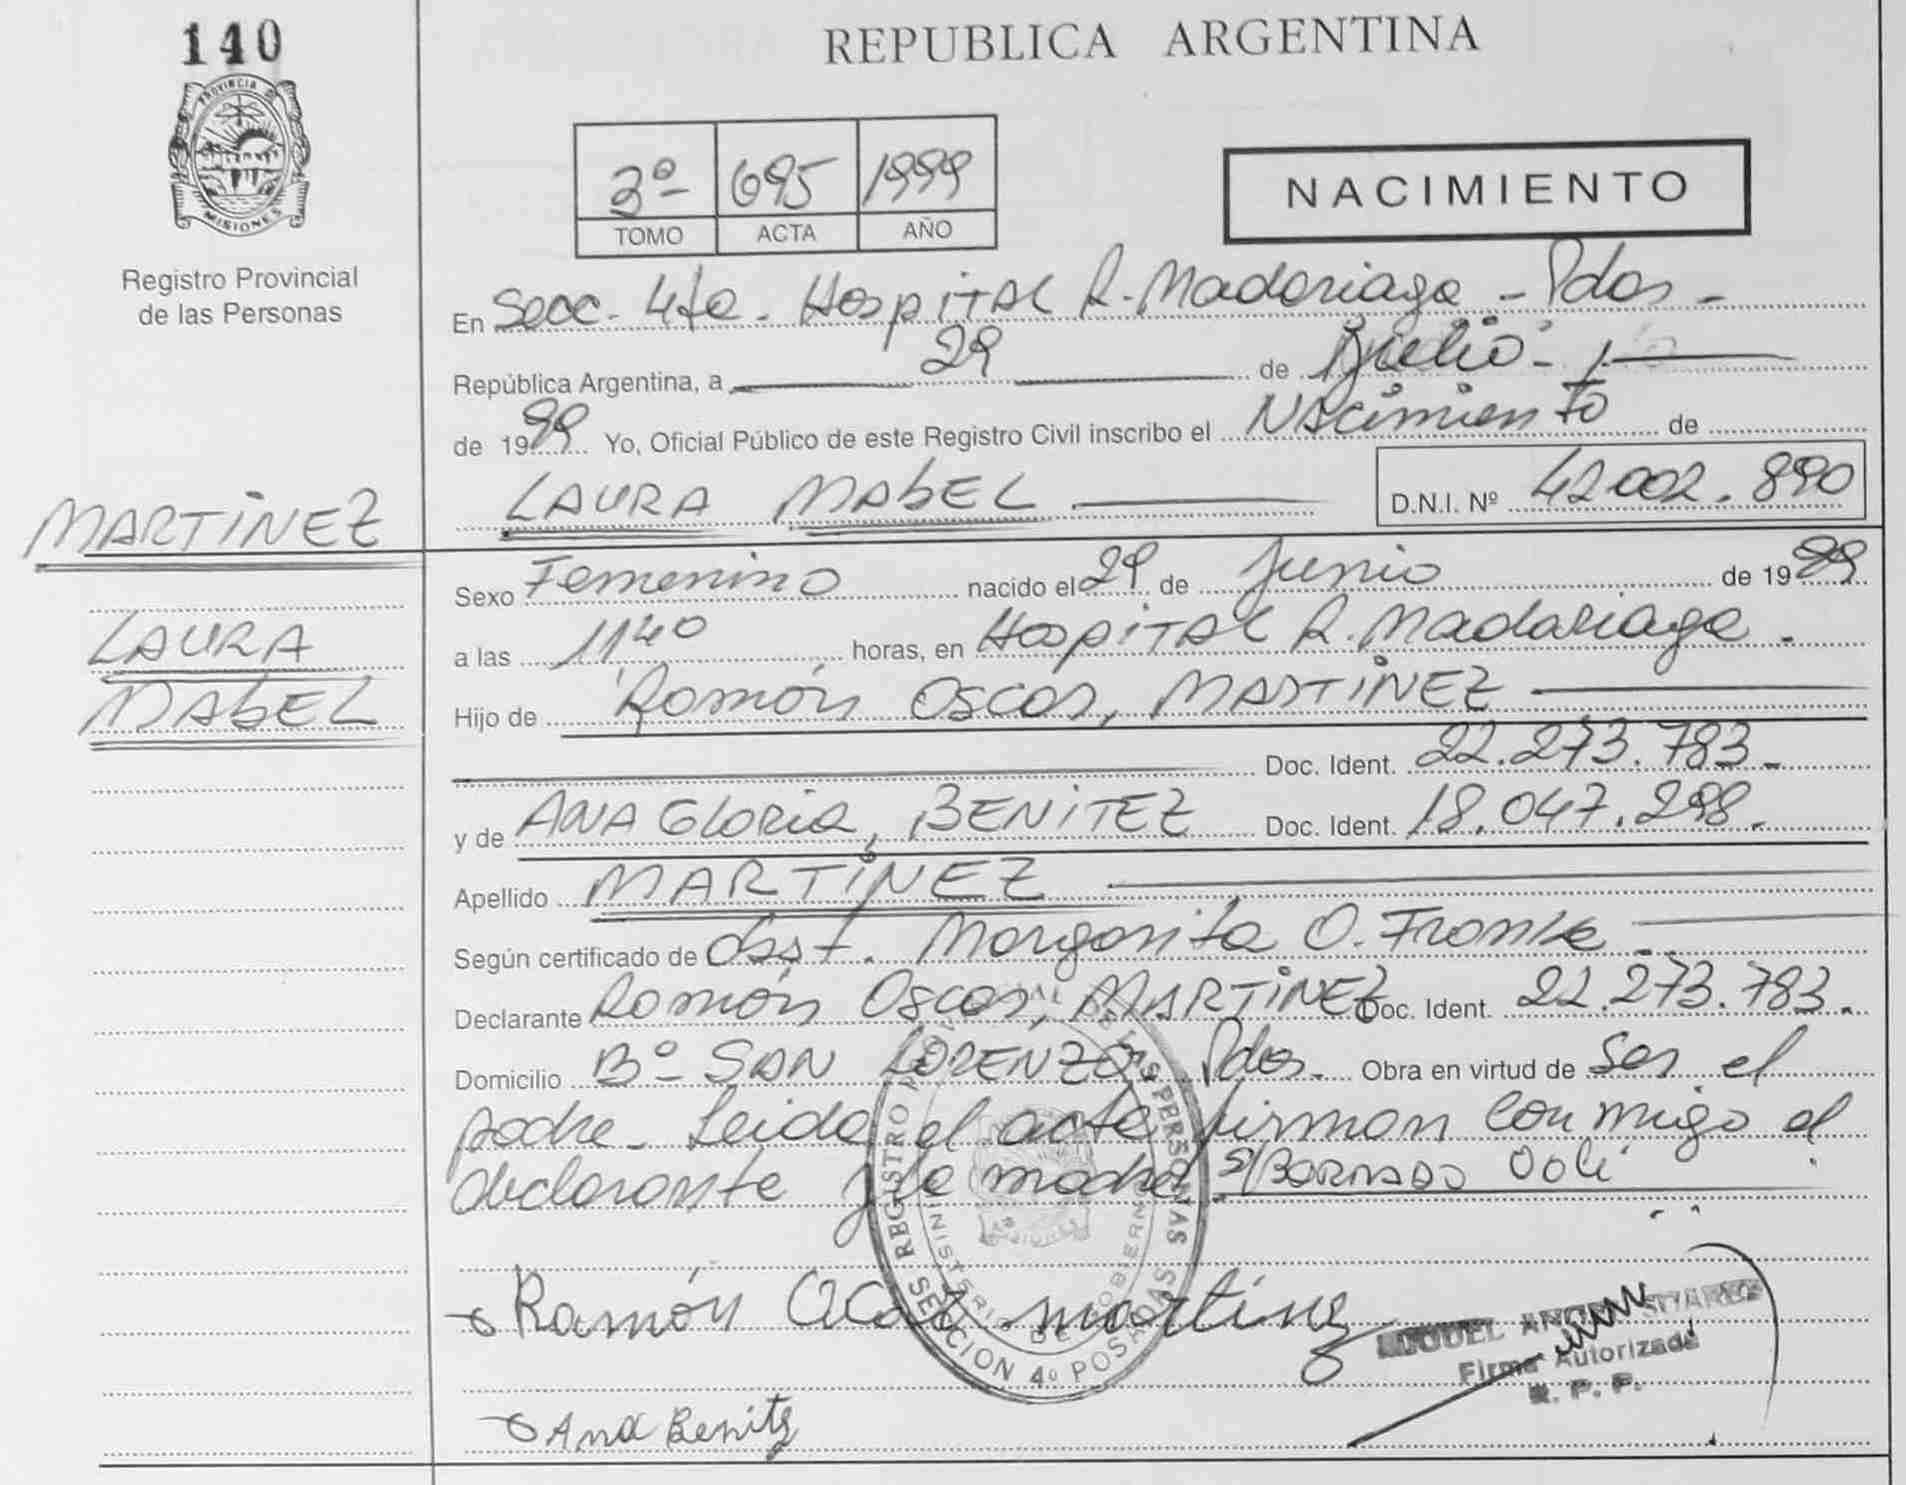 140
REPUBLICA ARGENTINA
PROVINCIA DE
MISIONES
Registro Provincial
de las Personas
3º 695 1999
TOMO ACTA AÑO
NACIMIENTO
En Secc. 4ta. Hospital R. Madariaga - Pdas -
República Argentina, a 29 de Julio -
de 1999 Yo, Oficial Público de este Registro Civil inscribo el Nacimiento de
LAURA MABEL D.N.I. Nº 42002.890
MARTINEZ
LAURA
MABEL
Sexo Femenino nacido el 29 de Junio de 1999
a las 1140 horas, en Hospital R. Madariaga.
Hijo de Ramón Oscar, MARTINEZ
Doc. Ident. 22.273.783.
y de ANA GLORIA, BENITEZ Doc. Ident. 18.047.298.
Apellido MARTINEZ
Según certificado de Obst. Margarita O. Franke.
Declarante Ramón Oscar, MARTINEZ Doc. Ident. 22.273.783.
Domicilio Bº SAN LORENZO, Pdas. Obra en virtud de ser el
padre. Leida el acta firman conmigo el
declarante y la madre. S/BORRADO
REGISTRO DE LAS PERSONAS
MINISTERIO DE GOBIERNO
SECCION 4º POSADAS
Ramón Martinez
MIGUEL ANGEL SUAREZ
Firma Autorizada
R. P. P.
Ana Benitz